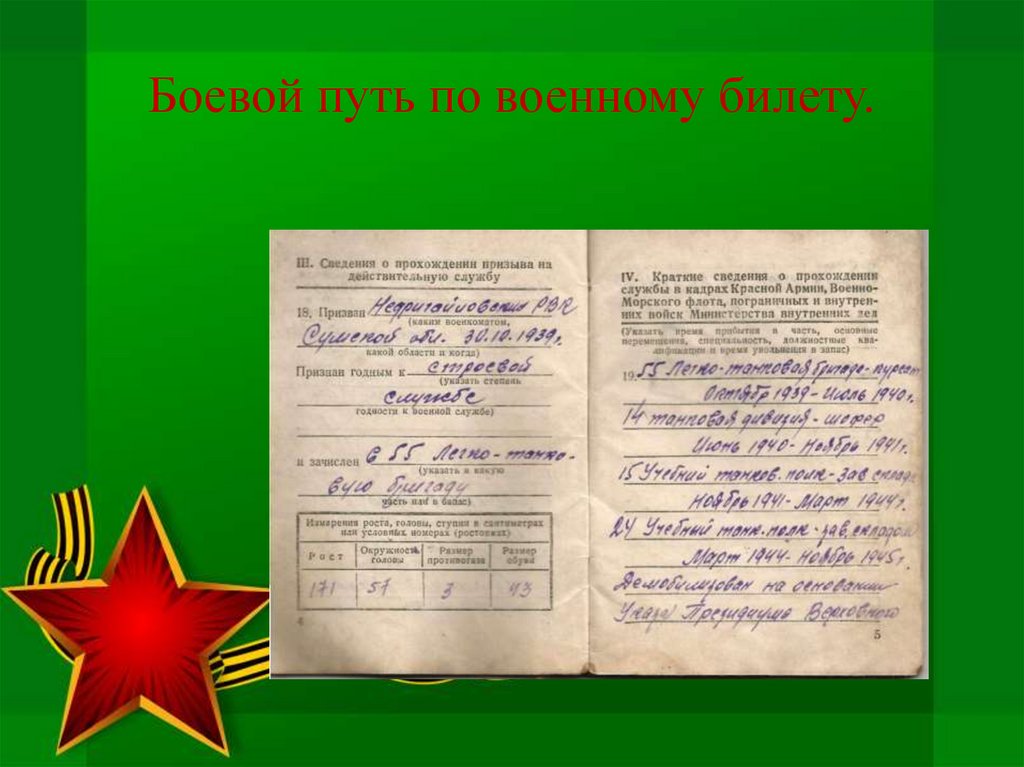 Боевой путь по военному билету.
III. Сведения о прохождении призыва на
действительную службу
18. Призван Недригайловским РВК
(каким военкоматом,
Сумской обл. 30.10.1939г.
какой области и когда)
Признан годным к строевой
(указать степень
службе
годности к военной службе)
и зачислен в 55 Легко-танко-
(указать в какую
вую бригаду
часть или в запас)
Измерения роста, головы, ступни в сантиметрах
или условных номерах (ростовках)
Рост Окружность головы Размер противогаза Размер обуви
171 57 3 43
4
IV. Краткие сведения о прохождении
службы в кадрах Красной Армии, Военно-
Морского флота, пограничных и внутрен-
них войск Министерства внутренних дел
(Указать время прибытия в часть, основные
перемещения, специальность, должностные ква-
лификации и время увольнения в запас)
19. 55 Легко-танковая бригада-курсант
Октябр 1939-Июль 1940г.
14 танковая дивизия-шофер
Июнь 1940-Ноябрь 1941г.
15 Учебний танков. полк-зав складо
Ноябрь 1941-Март 1944г.
24 Учебный танк. полк-зав. складом
Март 1944-Ноябрь 1945г.
Демобилизован на основании
Указа Президиума Верховного
5